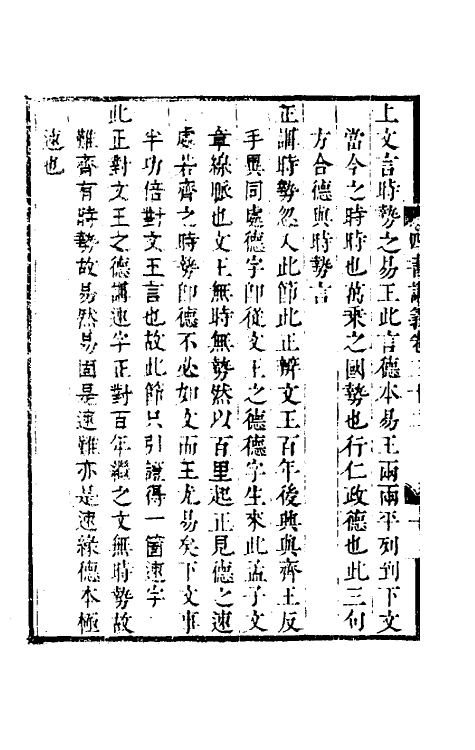 四書講義卷三十二
上文言時勢之易王此言德本易王兩兩平列到下文
當今之時時也萬乘之國勢也行仁政德也此三句
方合德與時勢言
正講時勢忽入此節此正辨文王百年後興與齊王反
手異同處德字卽從文王之德德字生來此孟子文
章線脈也文王無時無勢然以百里起正見德之速
處若齊之時勢卽德不必如文而王尤易矣下文事
半功倍對文王言也故此節只引證得一箇速字
此正對文王之德講速字正對百年繼之文無時勢故
難齊有時勢故易然易固是速難亦是速緣德本極
速也